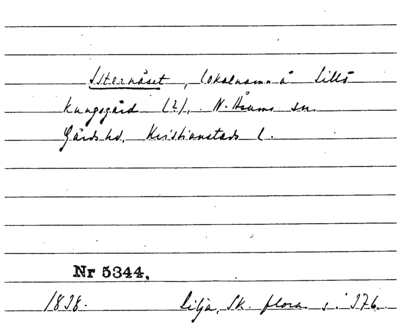 Isternäset, lokalnamn å Lillö
kungsgård (2), N. Åsums sn.
Gärds hd, Kristianstads l.
Nr 5344.
1838. Lilja, Sk. flora s. 376.